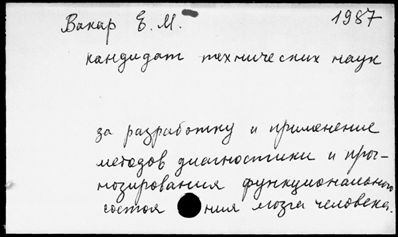 Вакар Е. М. 1987
кандидат технических наук
за разработку и применение
методов диагностики и прог-
нозирования функционального
состоя ния мозга человека.